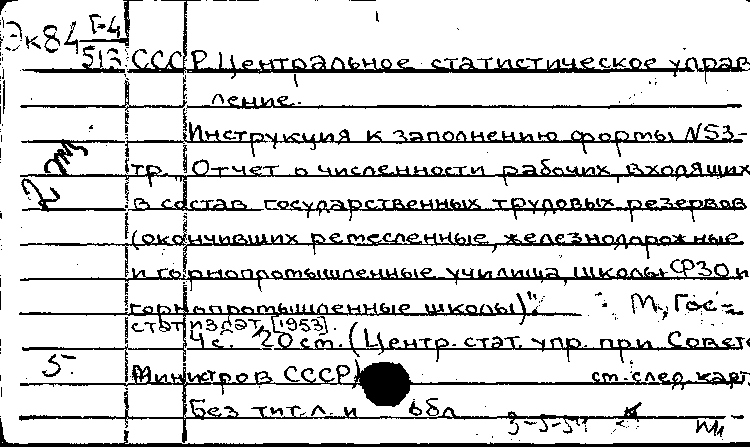 Эк84 Г-4
513
СССР. Центральное статистическое управ
ление.
Инструкция к заполнению формы N53-
тр. "Отчет о численности рабочих, входящих
в состав государственных трудовых резервов
(окончивших ремесленные, железнодорожные
и горнопромышленные училища, школы ФЗО и
горнопромышленные школы)". М., Гос=
статиздат, [1953].
4с. 20см. (Центр. стат. упр. при Совете
5. Министров СССР)
см. след. карт
Без тит. л. и обл
3-5-54